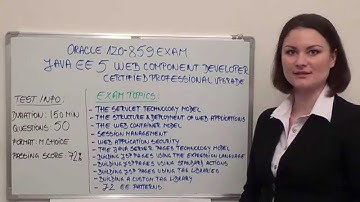 ORACLE 1Z0-859 EXAM
JAVA EE 5 WEB COMPONENT DEVELOPER
CERTIFIED PROFESSIONAL UPGRADE
TEST INFO:
DURATION: 150 MIN
QUESTIONS: 50
FORMAT: M.CHOICE
PASSING SCORE: 72%
EXAM TOPICS:
- THE SERVLET TECHNOLOGY MODEL
- THE STRUCTURE & DEPLOYMENT OF WEB APPLICATIONS
- THE WEB CONTAINER MODEL
- SESSION MANAGEMENT
- WEB APPLICATION SECURITY
- THE JAVA SERVER PAGES TECHNOLOGY MODEL
- BUILDING JSP PAGES USING THE EXPRESSION LANGUAGE
- BUILDING JSP PAGES USING STANDARD ACTIONS
- BUILDING JSP PAGES USING TAG LIBRARIES
- BUILDING A CUSTOM TAG LIBRARY
- J2 EE PATTERNS